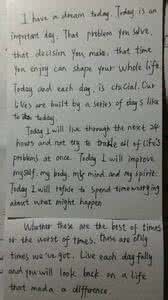 I have a dream today. Today is an
important day. That problem you solve,
that decision you make. that time
you enjoy can shape your whole life.
Today and each day is crucial. Our
lives are built by a series of days like
to today.
Today I will live through the next 24
hours and not try to tackle all of life's
problems at once. Today I will improve
myself. my body. my mind. and my spirit.
Today I will refuse to spend time worrying
about what might happen
Whether these are the best of times
or the worst of times. These are only
times we've got. Live each day fully
and you will look back on a life
that made a difference.